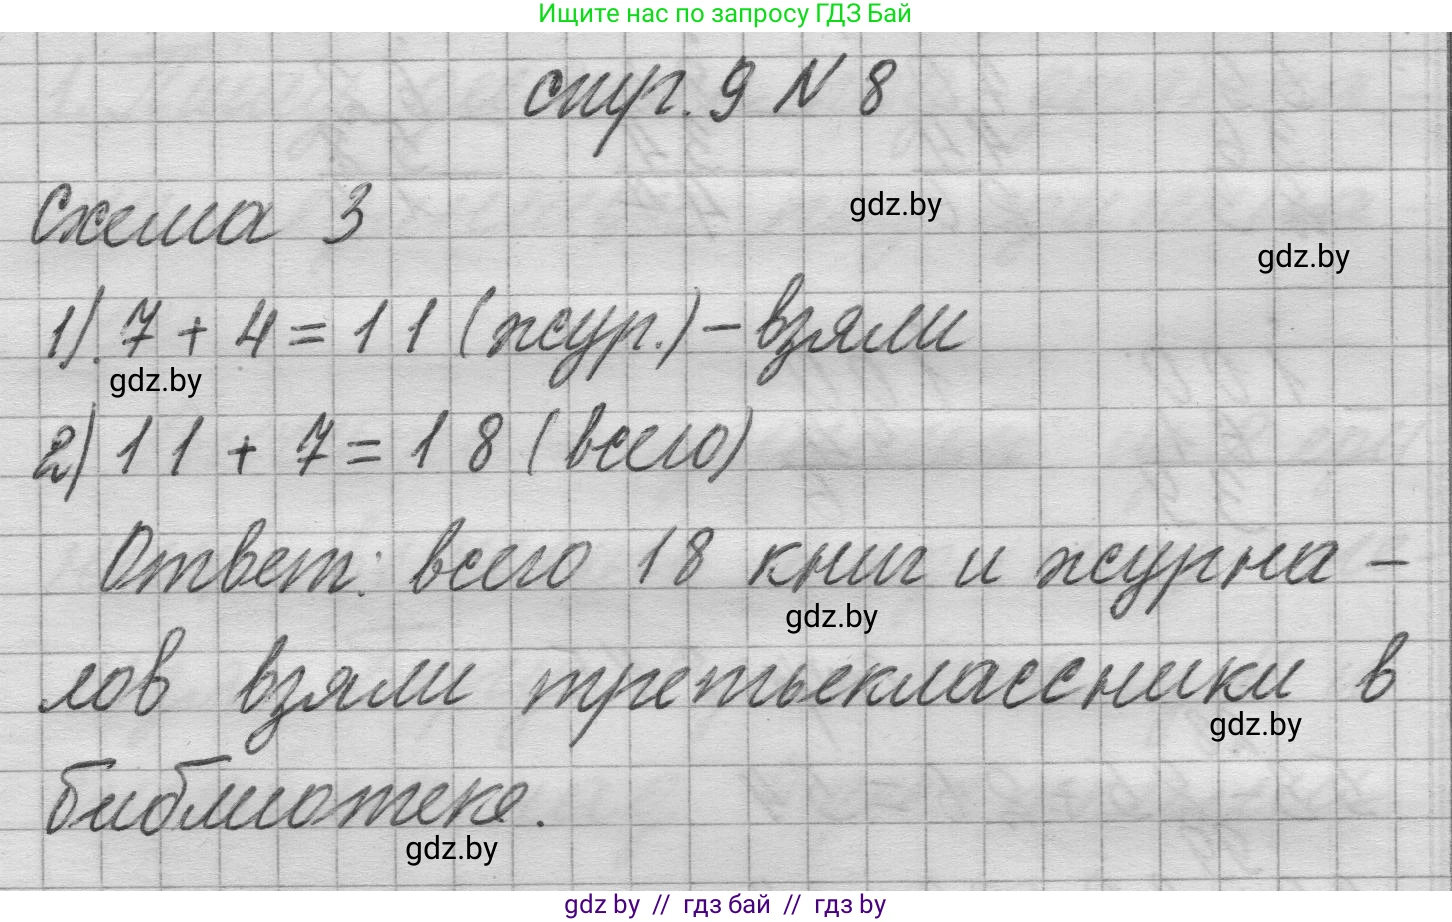 Ищите нас по запросу ГДЗ Бай
стр. 9 N 8
Схема 3
gdz.by
gdz.by
1). 7 + 4 = 11 (жур.) – взяли
gdz.by
2) 11 + 7 = 18 (всего)
Ответ: всего 18 книг и журна -
gdz.by
лов взяли третьеклассники в
gdz.by
библиотеке.
gdz.by
gdz by // гдз бай // гдз by